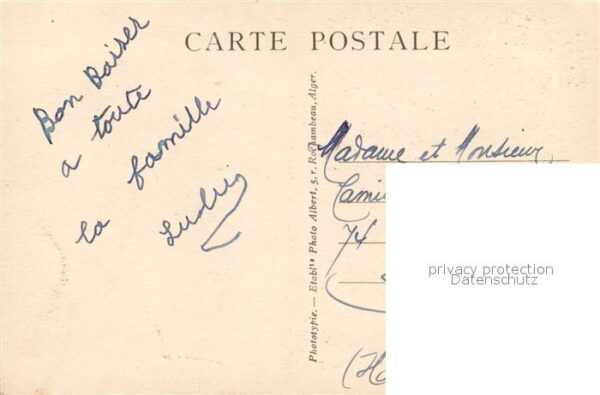 CARTE POSTALE
Bon Baiser
a toute
la famille
Phototypie. — Etablts Photo Albert, 5, r. Rochambeau, Alger.
Madame et Monsieur
74
privacy protection
Datenschutz